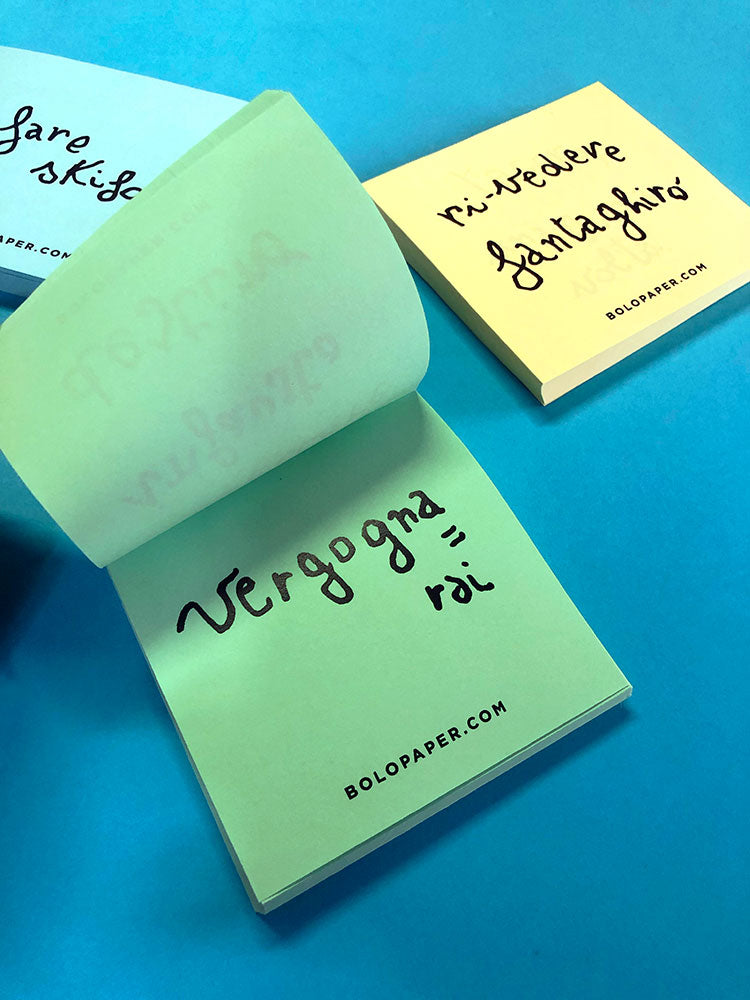 fare
APER.COM
ri-vedere
fantaghirò
BOLOPAPER.COM
vergogna
=
rai
BOLOPAPER.COM